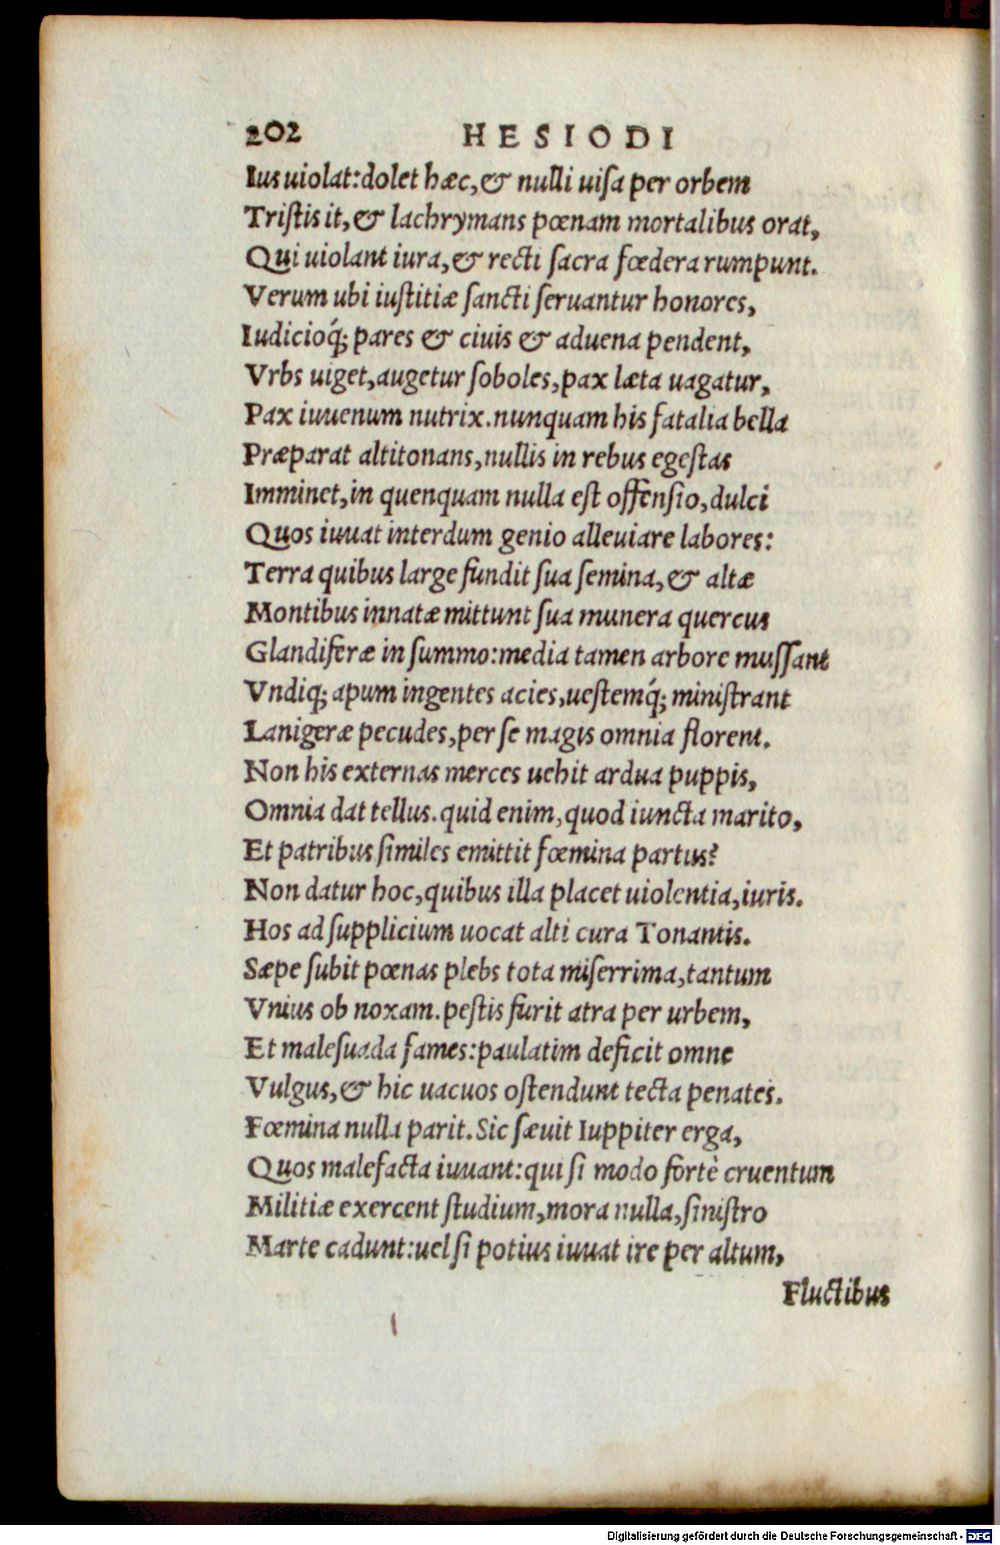 202 HESIODI
Ius uiolat: dolet hæc, & nulli uiſa per orbem
Triſtis it, & lachrymans pœnam mortalibus orat,
Qui uiolant iura, & recti ſacra fœdera rumpunt.
Verum ubi iuſtitiæ ſancti ſeruantur honores,
Iudicioq́; pares & ciuis & aduena pendent,
Vrbs uiget, augetur ſoboles, pax læta uagatur,
Pax iuuenum nutrix. nunquam his fatalia bella
Præparat altitonans, nullis in rebus egeſtas
Imminet, in quenquam nulla eſt offenſio, dulci
Quos iuuat interdum genio alleuiare labores:
Terra quibus large fundit ſua ſemina, & altæ
Montibus innatæ mittunt ſua munera quercus
Glandiferæ in ſummo: media tamen arbore muſſant
Vndiq; apum ingentes acies, ueſtemq́; miniſtrant
Lanigeræ pecudes, per ſe magis omnia florent.
Non his externas merces uehit ardua puppis,
Omnia dat tellus. quid enim, quod iuncta marito,
Et patribus ſimiles emittit fœmina partus?
Non datur hoc, quibus illa placet uiolentia, iuris.
Hos ad ſupplicium uocat alti cura Tonantis.
Sæpe ſubit pœnas plebs tota miſerrima, tantum
Vnius ob noxam. peſtis furit atra per urbem,
Et maleſuada fames: paulatim deficit omne
Vulgus, & hic uacuos oſtendunt tecta penates.
Fœmina nulla parit. Sic ſæuit Iuppiter erga,
Quos malefacta iuuant: qui ſi modo fortè cruentum
Militiæ exercent ſtudium, mora nulla, ſiniſtro
Marte cadunt: uel ſi potius iuuat ire per altum,
Fluctibus
Digitalisierung gefördert durch die Deutsche Forschungsgemeinschaft - DFG